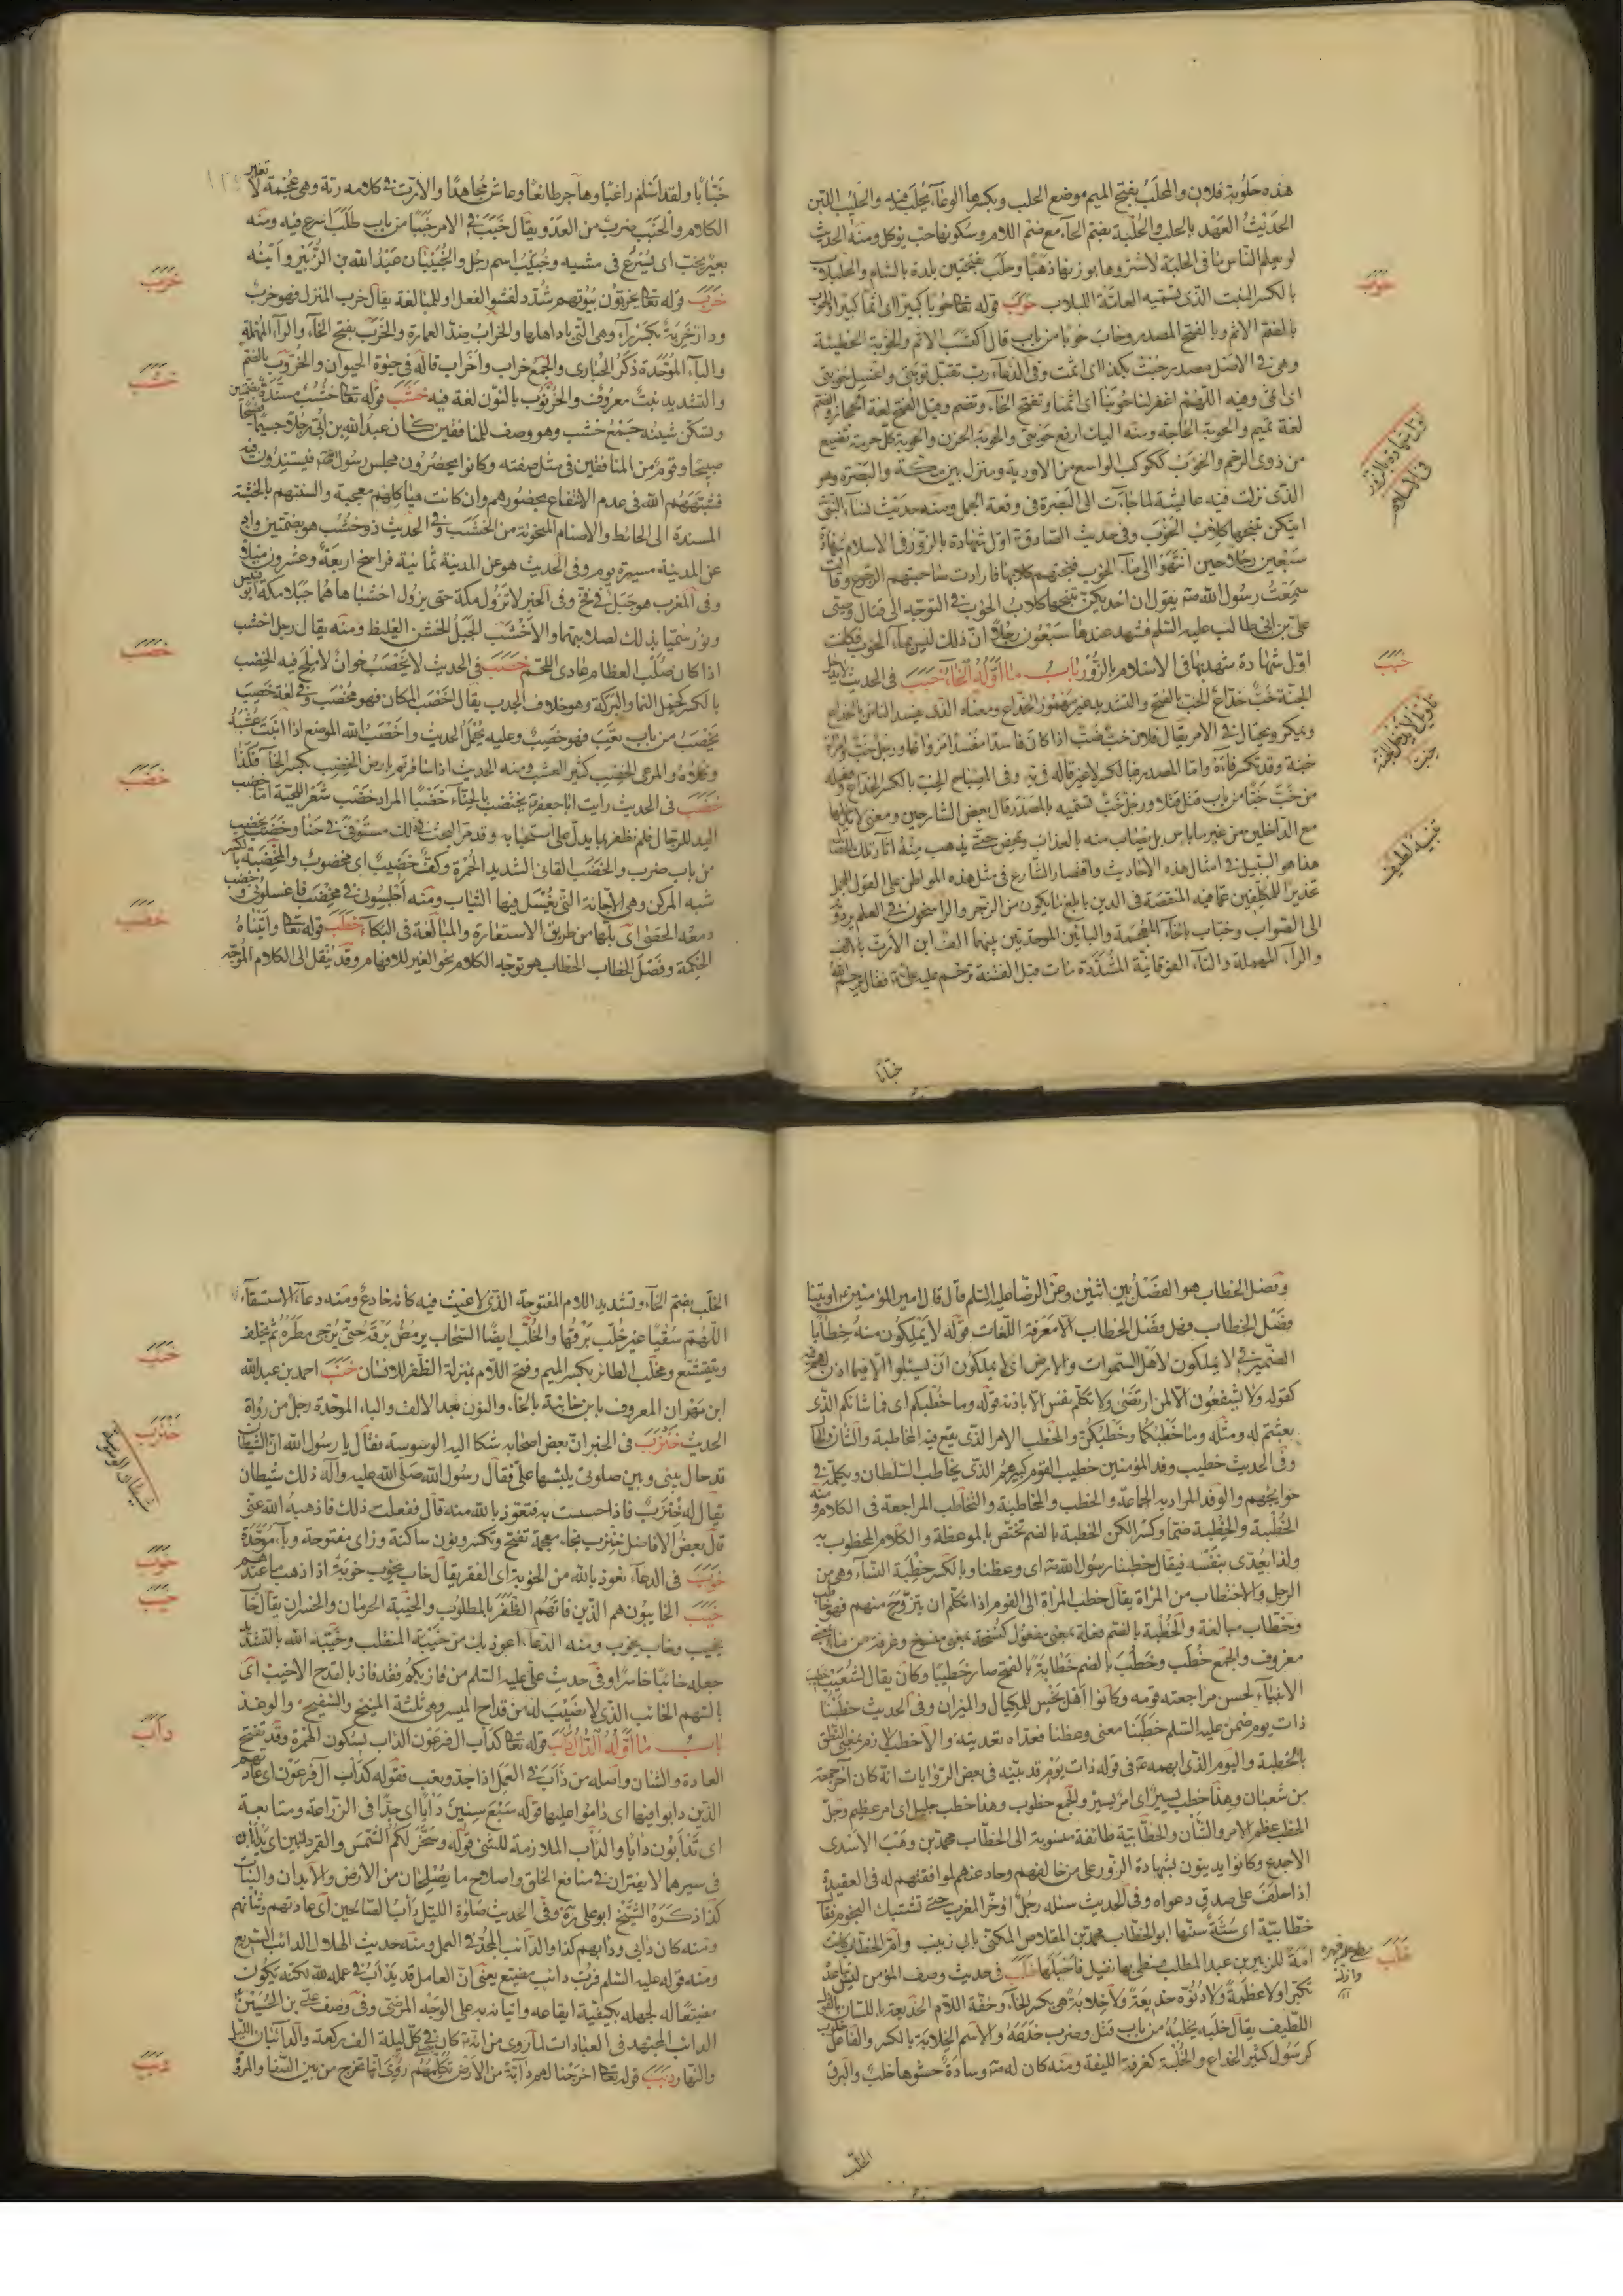 هذه حلوبة فلان والمحلب بفتح الميم موضع الحلب وبكسرها الوعاء يحلب فيه والحليب اللبن
الحديث العهد بالحلب والحلبة بضم الحاء مع ضم اللام وسكونها حب يوكل ومنه الحديث
لو يعلم الناس ما فى الحلبة لاشتروها بوزنها ذهبا وحلب بفتحتين بلدة بالشام والحلبلاب
بالكسر النبت الذى تسميه العامة اللبلاب حوب قوله تعا حوبا كبيرا اى اثما كبيرا والحوب
بالضم الاثم وبالفتح المصدر وحاب حوبا من باب قال اكتسب الاثم والحوبة الخطيئة
وهى فى الاصل مصدر حبت بكذا اى اثمت وفى الدعاء رب تقبل توبتى واغسل حوبتى
اى اثمى وفيه اللهم اغفر لنا حوبنا اى اثمنا وتفتح الحاء وتضم وقيل الفتح لغة الحجاز والضم
لغة تميم والحوبة الحاجة ومنه اليك ارفع حوبتى والحوبة الحزن والحوبة كل حرمة تضيع
من ذوى الرحم والحوب ككوكب الواسع من الاودية ومنزل بين مكة والبصرة وهو
الذى نزلت فيه عايشة لما جاءت الى البصرة فى وقعة الجمل ومنه حديث نساء النبى
ايتكن تنبحها كلاب الحوب وفى حديث الصادق ع اول شهادة بالزور فى الاسلام شهادة
سبعين رجلا حين انتهوا الى ماء الحوب فنبحتهم كلابها فارادت صاحبتهم الرجوع وقالت
سمعت رسول الله ص يقول ان احديكن تنبحها كلاب الحوب فى التوجه الى قتال وصيى
على بن ابى طالب عليه السلم فشهد عندها سبعون رجلا ان ذلك ليس بماء الحوب فكانت
اول شهادة شهد بها فى الاسلام بالزور باب ما اوله الخاء خبب فى الحديث لا يدخل
الجنة خب خداع الخب بالفتح والتشديد غير مهموز الخداع ومعناه الذى يفسد الناس بالخداع
ويمكر ويحتال فى الامر يقال فلان خب ضب اذا كان فاسدا مفسدا مراوغا ورجل خب وامراة
خبة وقد تكسر فاؤه واما المصدر فبالكسر لا غير قاله فى يه وفى المصباح الخب بالكسر الخداع وفعله
من خب خبا من باب قتل قتلا ورجل خب تسميه بالمصدر قال بعض الشارحين ومعنى لا يدخلها
مع الداخلين من غير ما باس بل يصاب منه بالعذاب ويمحص حتى يذهب منه اثار تلك الخصال
هذا هو السبيل فى امثال هذه الاحاديث واقتصار الشارع فى مثل هذه المواطن على القول المجمل
تحذير للمكلفين عما فيه المنقصة فى الدين بابلغ ما يكون من الزجر والراسخون فى العلم يردونه
الى الصواب وخباب بالخاء المعجمة والبائين الموحدتين بينهما الف ابن الارت بالالف
والراء المهملة والتاء الفوقانية المشددة مات قبل الفتنة ترحم عليه على ع فقال يرحم الله
خبابا
حوب
اول شهادة بالزور
فى الاسلام
خبب
تاويل لا يدخل الجنة
خب
تنبيه لطيف
خبابا ولقد اسلم راغبا وهاجر طائعا وعاش مجاهدا والارت فى كلامه رتة وهى عجمة لا تغير
الكلام والخبب ضرب من العدو يقال خبب فى الامر خببا من باب طلب اسرع فيه ومنه
بعير يخب اى يسرع فى مشيه وخبيب اسم رجل والخبيبان عبد الله بن الزبير وابنه
خرب قوله تعا يخربون بيوتهم شدد لفشو الفعل او للمبالغة يقال خرب المنزل فهو خرب
ودار خربة بكسر راء وهى التى باد اهلها والخراب ضد العمارة والخرب بفتح الخاء والراء المهملة
والباء الموحدة ذكر الحبارى والجمع خراب واخراب قاله فى حيوة الحيوان والخروب بالضم
والتشديد نبت معروف والخرنوب بالنون لغة فيه خشب قوله تعا خشب مسندة بضمتين
وتسكن شينه جمع خشب وهو وصف للمنافقين كان عبد الله بن ابى رجلا جسيما فصيحا
صبيحا وقوم من المنافقين فى مثل صفته وكانوا يحضرون مجلس رسول الله ص فيستندون فيه
فشبههم الله فى عدم الانتفاع بحضورهم وان كانت هياكلهم معجبة والسنتهم بالخشبة
المسندة الى الحائط والاصنام المنحوتة من الخشب وفى الحديث ذو خشب هو بضمتين واد
عن المدينة مسيرة يوم وفى الحديث هو عن المدينة ثمانية فراسخ اربعة وعشرون ميلا
وفى المغرب هو جبل فى نخ وفى الخبر لا تزول مكة حتى يزول اخشباها هما جبلا مكة ابو قبيس
وثور سميا بذلك لصلابتهما والاخشب الجبل الخشن الغليظ ومنه يقال رجل اخشب
اذا كان صلب العظام عارى اللحم خصب فى الحديث لا يخصب خوان لا ملح فيه الخصب
بالكسر كحمل النما والبركة وهو خلاف الجدب يقال اخصب المكان فهو مخصب وفى لغة خصب
يخصب من باب تعب فهو خصب وعليه يحمل الحديث واخصب الله الموضع اذا انبت عشبه
وكلاءه والمرعى الخصب كثير العشب ومنه الحديث اذا سافرتم بارض الخصب بكسر الخاء فكذا
خضب فى الحديث رايت ابا جعفر ع يختضب بالحناء خضبا المراد خضب شعر اللحية اما خضب
اليد للرجال فلم نظفر بما يدل على استحبابه وقد مر البحث فى ذلك مستوفى فى حنا وخضب يخضب
من باب ضرب والخضب القانى الشديد الحمرة وكف خضيب اى مخضوب والمخضبة بالكسر
شبه المركن وهى الاجانة التى يغسل فيها الثياب ومنه اجلسونى فى مخضب فاغسلونى وخضب
دمعه الحصى اى بلها من طريق الاستعارة والمبالغة فى البكاء خطب قوله تعا واتيناه
الحكمة وفصل الخطاب الخطاب هو توجيه الكلام نحو الغير للافهام وقد ينقل الى الكلام الموجه
خرب
خشب
خصب
خضب
خطب
وفصل الخطاب هو الفصل بين اثنين وعن الرضا عليه السلم قال قال امير المؤمنين ع اوتينا
فصل الخطاب وهل فصل الخطاب الا معرفة اللغات قوله لا يملكون منه خطابا
الضمير فى لا يملكون لاهل السموات والارض اى لا يملكون ان يسئلوا الا فيما اذن لهم فيه
كقوله ولا يشفعون الا لمن ارتضى ولا تكلم نفس الا باذنه قوله وما خطبكم اى فما شانكم الذى
بعثتم له ومثله وما خطبكما وخطبكن والخطب الامر الذى يقع فيه المخاطبة والشان والحال
وفى الحديث خطيب وفد المؤمنين خطيب القوم كبيرهم الذى يخاطب السلطان ويكلمه فى
حوايجهم والوفد المراد به الجماعة والخطب والمخاطبة والتخاطب المراجعة فى الكلام ومنه
الخطبة والخطبة ضما وكسرا لكن الخطبة بالضم تختص بالموعظة والكلام المخطوب به
ولذا يعدى بنفسه فيقال خطبنا رسول الله ص اى وعظنا وبالكسر خطبة النساء وهى من
الرجل والاختطاب من المراة يقال خطب المراة الى القوم اذا تكلم ان يتزوج منهم فهو خاطب
وخطاب مبالغة والخطبة بالضم فعلة بمعنى مفعول كنسخة بمعنى منسوخ وغرفة من ماء بمعنى
معروف والجمع خطب وخطب بالضم خطابة بالفتح صار خطيبا وكان يقال لشعيب خطيب
الانبياء لحسن مراجعته قومه وكانوا اهل بخس للمكيال والميزان وفى الحديث خطبنا
ذات يوم ضمن عليه السلم خطبنا معنى وعظنا فعداه تعديته والا خطب لازم بمعنى النطق
بالخطبة واليوم الذى ابهمه ع فى قوله ذات يوم قد بينه فى بعض الروايات انه كان آخر جمعة
من شعبان وهذا خطب يسير اى امر يسير والجمع خطوب وهذا خطب جليل اى امر عظيم وجل
الخطب عظم الامر والشأن والخطابية طائفة منسوبة الى الخطاب محمد بن وهب الاسدى
الاجدع وكانوا يدينون بشهادة الزور على من خالفهم وحادعنهم لموافقتهم له فى العقيدة
اذا حلف على صدق دعواه وفى الحديث سئله رجل اؤخر المغرب حتى تشتبك النجوم فقال
خطابية اى سنة سنها ابو الخطاب محمد بن المقلاص المكنى بابى زينب وام الخطاب كانت
امة للزبير بن عبد المطلب فسطى بها نفيل فاحبلها خلب فى حديث وصف المؤمن ليس تباعده
تكبرا ولا عظمة ولا دنوه خديعة ولا خلابة هى بكسر الخاء وخفة اللام الخديعة باللسان بالقول
اللطيف يقال خلبه يخلبه من باب قتل وضرب خدعه والاسم الخلابة بالكسر والفاعل خلوب
كرسول كثير الخداع والخلبة كغرفة الليفة ومنه كان له ص وسادة حشوها خلب والبرق
الخلب
خلب
الخلب بضم الخاء وتشديد اللام المفتوحة الذى لا غيث فيه كانه خادع ومنه دعاء الاستسقاء
اللهم سقيا غير خلب برقها والخلب ايضا السحاب يومض برقه حتى يرجى مطره ثم يخلف
ويتقشع ومخلب الطائر بكسر الميم وفتح اللام بمنزلة الظفر للانسان خنب احمد بن عبد الله
ابن مهران المعروف بابن خانبة بالخاء والنون بعد الالف والباء الموحدة رجل من رواة
الحديث خنزب فى الخبر ان بعض اصحابه شكا اليه الوسوسة فقال يا رسول الله ان الشيطان
قد حال بينى وبين صلوتى يلبسها على فقال رسول الله صلى الله عليه وآله ذلك شيطان
يقال له خنزب فاذا احسست به فتعوذ بالله منه قال ففعلت ذلك فاذهبه الله عنى
قال بعض الافاضل خنزب بخاء معجمة تفتح وتكسر ونون ساكنة وزاى مفتوحة وباء موحدة
خوب فى الدعاء نعوذ بالله من الخوبة اى الفقر يقال خاب يخوب خوبة اذا ذهب ما عندهم
خيب الخايبون هم الذين فاتهم الظفر بالمطلوب والخيبة الحرمان والخسران يقال خاب
يخيب وخاب يخوب ومنه الدعاء اعوذ بك من خيبة المنقلب وخيبه الله بالتشديد
جعله خائبا خاسرا وفى حديث على عليه السلم من فاز بكم فقد فاز بالقدح الاخيب اى
بالسهم الخائب الذى لا نصيب له من قداح الميسر وهى ثلثة المنيح والسفيح والوغد
باب ما اوله الدال داب قوله تعا كداب ال فرعون الداب بسكون الهمزة وقد تفتح
العادة والشان واصله من دأب فى العمل اذا جد وتعب فقوله كدأب آل فرعون اى عادتهم
الذين دابوا فيها اى داموا عليها قوله سبع سنين دابا اى جدا فى الزراعة ومتابعة
اى تدأبون دابا والدأب الملازمة للشئ قوله وسخر لكم الشمس والقمر دائبين اى يدابان
فى سيرهما لا يفتران فى منافع الخلق واصلاح ما يصلحان من الارض والابدان والنبات
كذا ذكره الشيخ ابو على ره وفى الحديث صلوة الليل دأب الصالحين اى عادتهم وشانهم
ومنه كان دابى ودابهم كذا والدائب المجد فى العمل ومنه حديث الهلال الدائب السريع
ومنه قوله عليه السلم فرب دائب مضيع يعنى ان العامل قد يدأب فى عمله لله لكنه يكون
مضيعا له لجهله بكيفية ايقاعه واتيانه به على الوجه المرضى وفى وصف على بن الحسين ع
الدائب المجتهد فى العبادات لما روى من انه كان يصلى فى كل ليلة الف ركعة والدائبان الليل
والنهار دبب قوله تعا اخرجنا لهم دابة من الارض تكلمهم روى انها تخرج من بين الصفا والمروة
خنب
خنزب
شيطان الوسوسة
خوب
خيب
داب
دبب